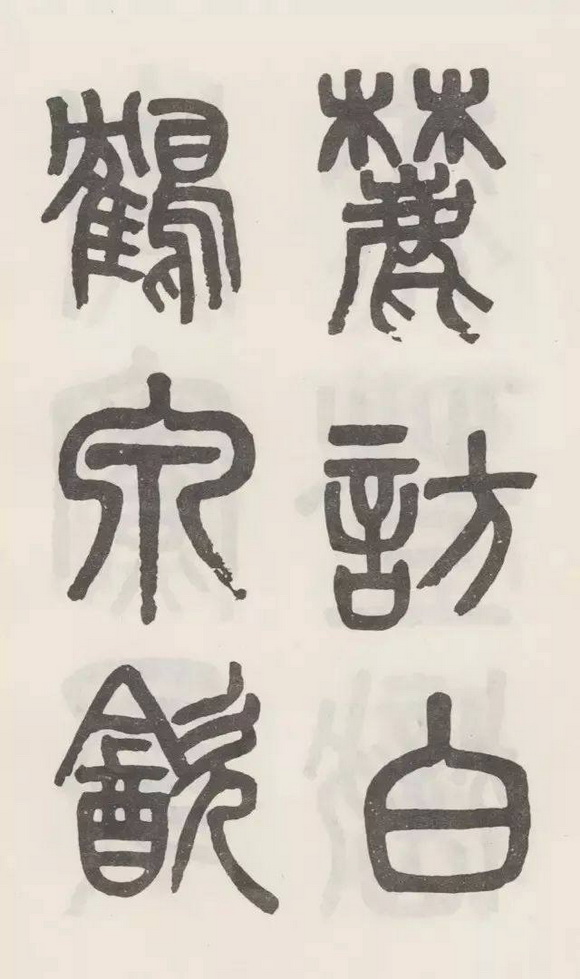 麓訪白
鶴泉飲